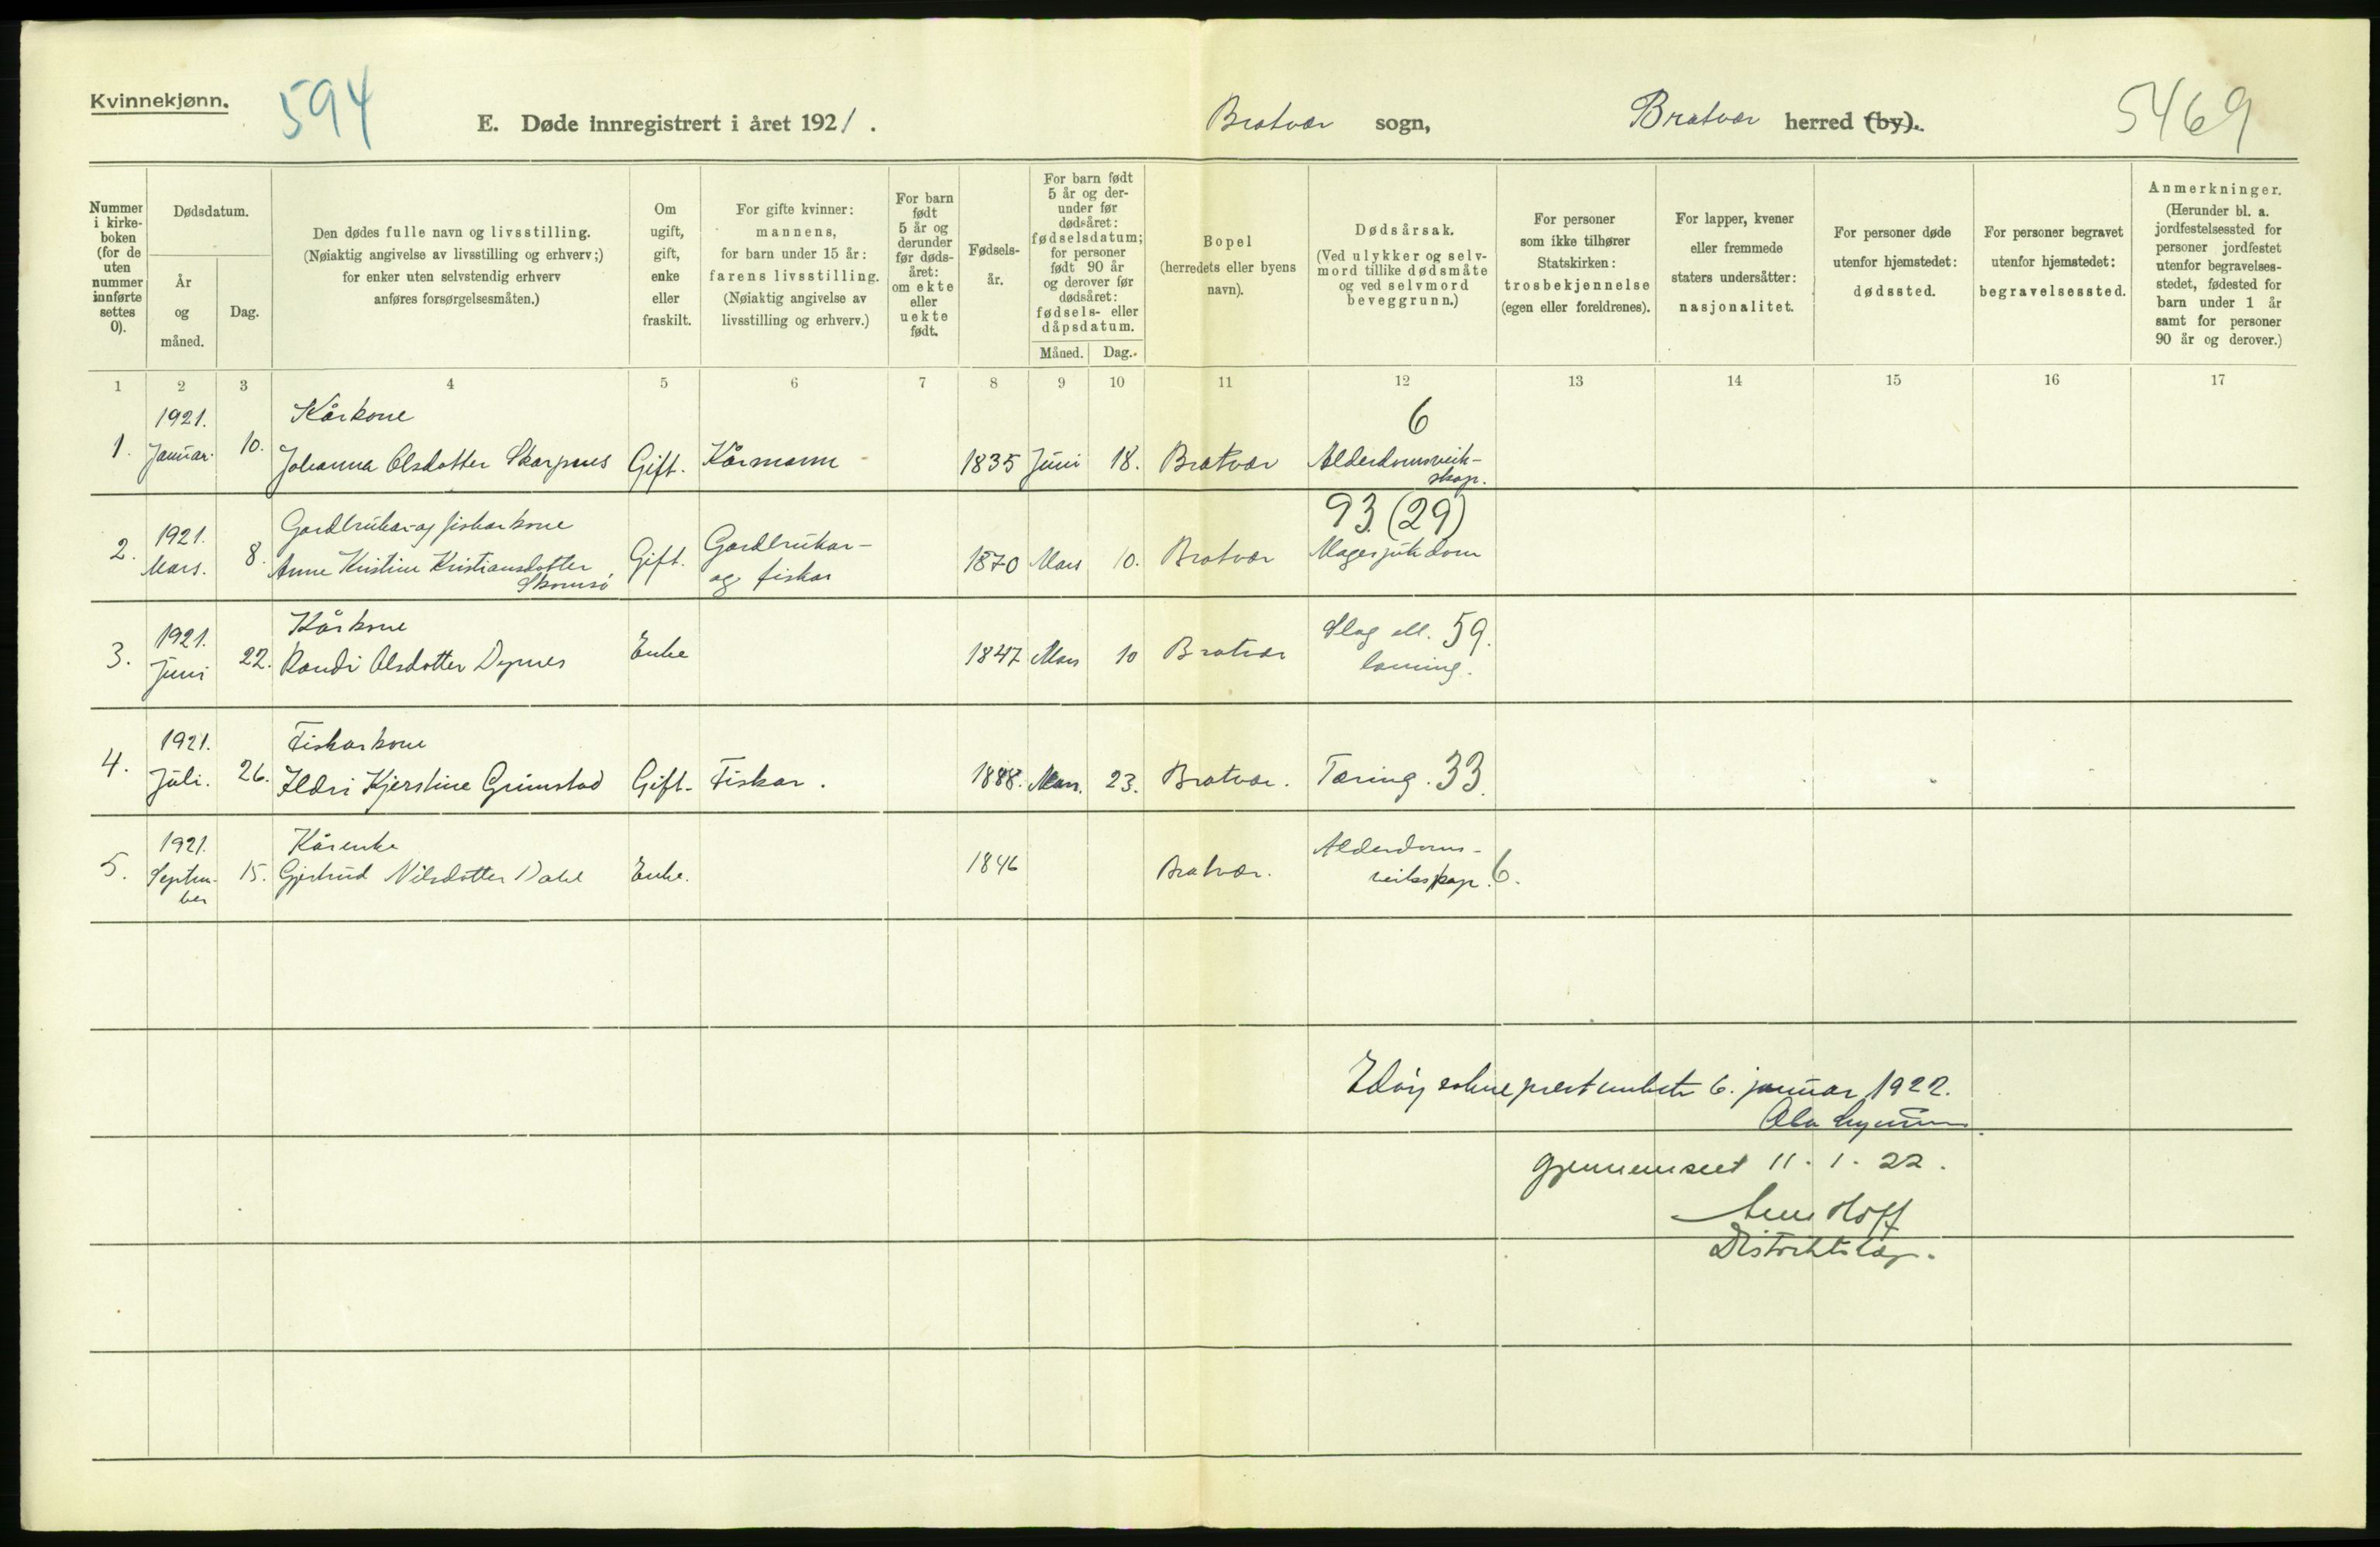 Kvinnekjønn.
594
E. Døde innregistrert i året 1921.
Bratvær sogn,
Bratvær herred (by).
5469
Nummer i kirke-boken (for de uten nummer innførte settes 0).
Dødsdatum.
År og måned.
Dag.
Den dødes fulle navn og livsstilling.
(Nøiaktig angivelse av livsstilling og erhverv;)
for enker uten selvstendig erhverv
anføres forsørgelsesmåten.)
Om ugift, gift, enke eller fraskilt.
For gifte kvinner:
mannens,
for barn under 15 år:
farens livsstilling.
(Nøiaktig angivelse av
livsstilling og erhverv.)
For barn født 5 år og derunder før døds-året: om ekte eller uekte født.
Fødsels-år.
For barn født 5 år og der-under før dødsåret: fødselsdatum; for personer født 90 år og derover før dødsåret: fødsels- eller dåpsdatum.
Måned.
Dag.
Bopel
(herredets eller byens
navn).
Dødsårsak.
(Ved ulykker og selv-
mord tillike dødsmåte
og ved selvmord
beveggrunn.)
For personer
som ikke tilhører
Statskirken:
trosbekjennelse
(egen eller foreldrenes).
For lapper, kvener
eller fremmede
staters undersåtter:
nasjonalitet.
For personer døde
utenfor hjemstedet:
dødssted.
For personer begravet
utenfor hjemstedet:
begravelsessted.
Anmerkninger.
(Herunder bl. a.
jordfestelsessted for
personer jordfestet
utenfor begravelses-
stedet, fødested for
barn under 1 år
samt for personer
90 år og derover.)
1 2 3 4 5 6 7 8 9 10 11 12 13 14 15 16 17
1921. Kårkone 6
1. Januar. 10. Johanna Olsdotter Skarpnes Gift. Kårmann 1835 Juni 18. Bratvær Alderdomsveik-
skap.
Gardbrukar- og fiskarkone 93. (29)
2. 1921. Mars. 8. Anne Kristine Kristiansdotter Gift. Gardbrukar- 1870 Mars 10. Bratvær Magesjukdom
og fiskar
1921. Kårkone Slag ell. 59.
3. Juni 22. Randi Olsdotter Dyrnes Enke 1847 Mars 10 Bratvær laming.
1921. Fiskarkone
4. Juli. 26. Ildri Kjerstine Grimstad Gift. Fiskar. 1888. Mars. 23. Bratvær. Tæring. 33.
1921. Kårenke Alderdoms-
5. Septem- 15. Gjertrud Nilsdotter Dahl Enke. 1846 Bratvær. veikskap. 6.
ber
Edøy sokneprestembete 6. januar 1922.
Gjennemseet 11. 1. 22.
Hoff
Distriktslæge.